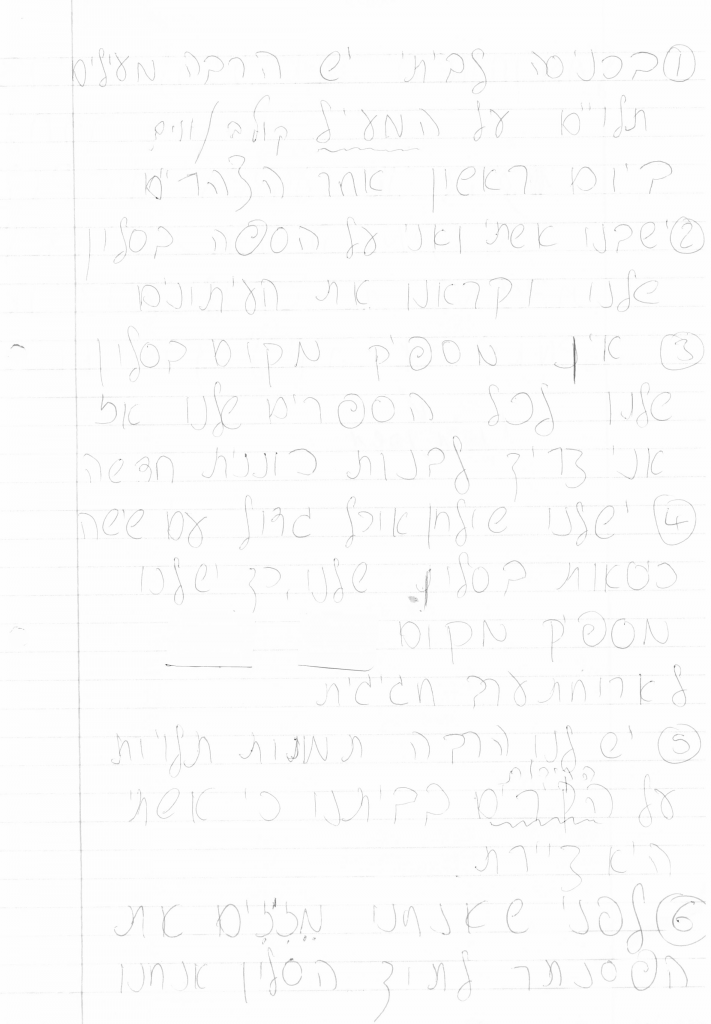 ① בכניסה לביתי יש הרבה מעילים
תלוים על המעיל קולב/ווים
ביום ראשון אחר הצהרים
② ישבנו אשתי ואני על הספה בסלון
שלנו וקראנו את העיתונים
③ אין מספיק מקום בסלון
שלנו לכל הספרים שלנו אז
אני צריך לבנות כוננית חדשה
④ ישלנו שולחן אוכל גדול עם ששה
כסאות בסלון שלנו, כך ישלנו
מספיק מקום
לארוחת ערב חגיגית
⑤ יש לנו הרבה תמונות תלויות
הקירות
על הקירים בביתנו כי אשתי
היא ציירת.
⑥ לפני שאנחנו מזיזים את
הפסנתר לתוך הסלון אנחנו